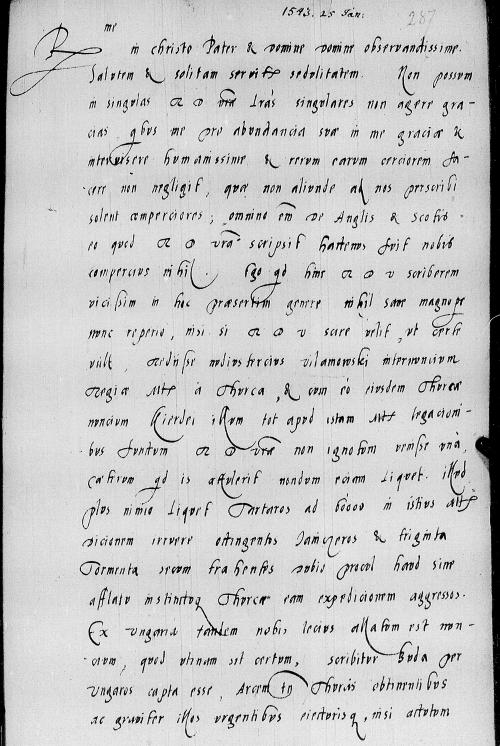 1543. 25 Jan: 287
R me
in christo Pater & domine domine observandissime.
Salutem & solitam servit sedulitatem. Non possum
in singulas R D vrae lras singulares non agere gra-
cias qbus me pro abundancia suae in me graciae &
intervisere humanissime & rerum earum cerciorem fa-
cere non negligit, quae non aliunde ad nos perscribi
solent comperciores; omnino em de Anglis & Scotis
eo quod R D vra scripsit hactenus fuit nobis
compercius nihil. Ego qd hinc R D v scriberem
vicissim in hoc praesertim genere nihil sane magnope
nunc reperio, nisi si R D v scire velit, ut certe
vult, rediisse nudiustercius vilamowski internuncium
Regiae Mtis a Thurca, & cum eo eiusdem Thurcae
nuncium illum tot apud istam Mtem legacioni-
bus functum R D vrae non ignotum venisse una,
caeterum qd is attulerit nondum eciam liquet. illud
plus nimio liquet Tartaros ad in istius Mtis
dicionem irruere Janiczeros & triginta
Tormenta secum trahentes dubio procul haud sine
afflatu instinctuq Thurcae eam expedicionem aggressos.
Ex Ungaria tandem nobis lecius allatum est nun-
cium, quod utinam sit certum, scribitur Buda per
Ungaros capta esse, Arcem Thurcis obtinentibus
ac graviter illos urgentibus eiecturisq, nisi actutum